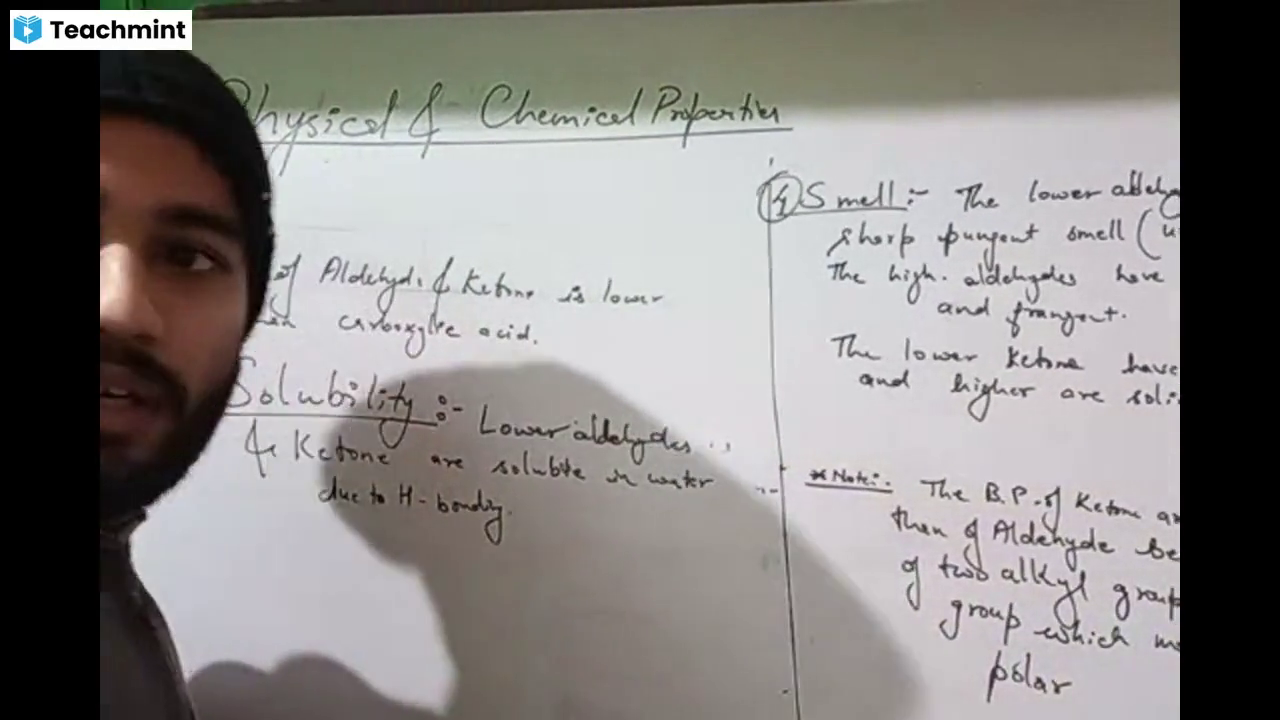 Teachmint
Physical & Chemical Properties
of Aldehyd. & Ketone is lower
carboxylic acid.
Solubility :- Lower aldehydes
& Ketone are soluble in water
due to H-bonding.
4 Smell :- The lower aldehy
sharp pungent smell (u
The high. aldehydes have
and frangent.
The lower ketone have
and higher are soli
* Note:- The B.P. of Ketone ar
then of Aldehyde be
of two alkyl group
group which mo
polar